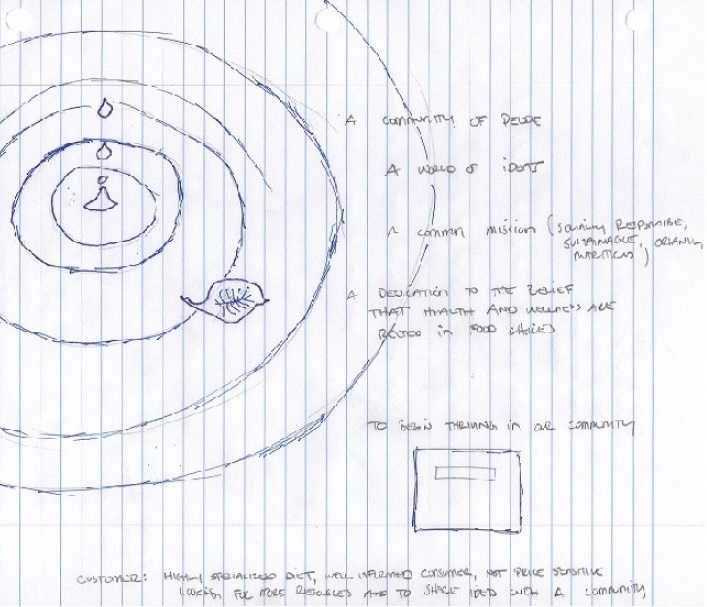 A COMMUNITY OF PEOPLE
A WORLD OF IDEAS
A COMMON MISSION (SOCIALLY RESPONSIBLE,
SUSTAINABLE, ORGANIC,
NUTRITIOUS)
A DEDICATION TO THE BELIEF
THAT HEALTH AND WELLNESS ARE
ROOTED IN FOOD CHOICES
TO BEGIN THRIVING IN OUR COMMUNITY
CUSTOMER: HIGHLY SPECIALIZED DIET, WELL INFORMED CONSUMER, NOT PRICE SENSITIVE
LOOKING FOR MORE RESOURCES AND TO SHARE IDEAS WITH A COMMUNITY,